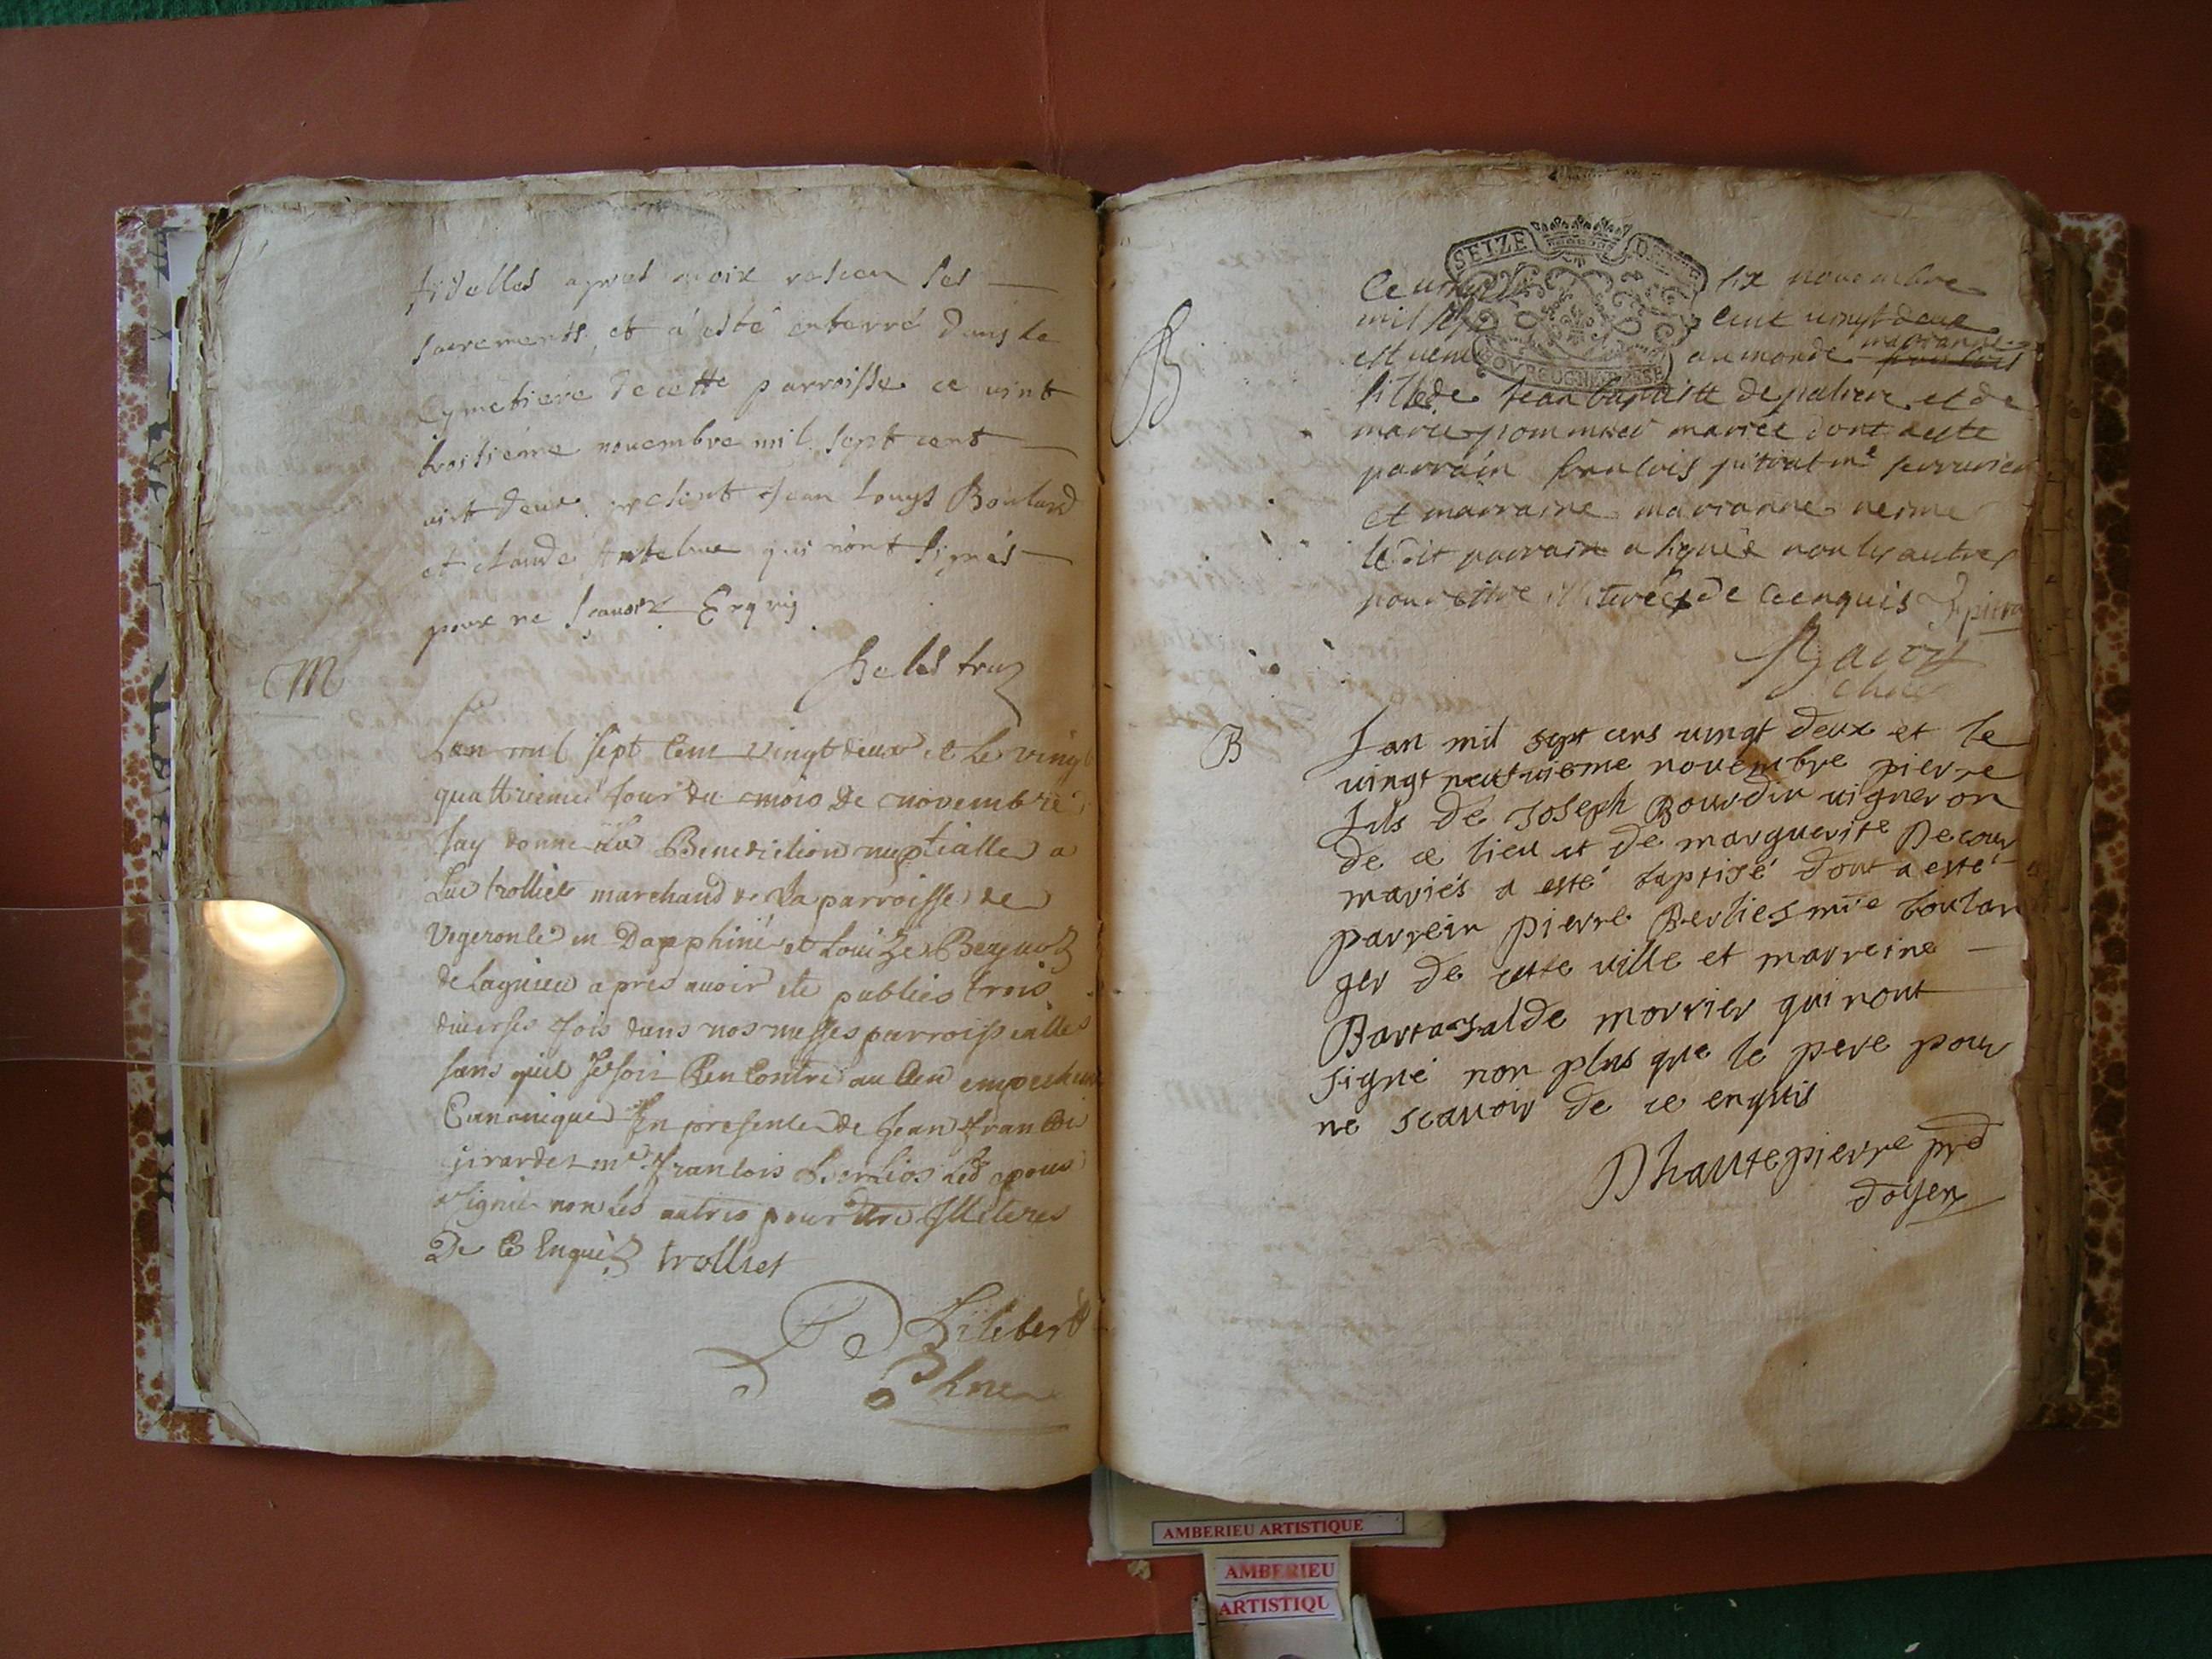 fidelles apres avoir reseu ses
sacrements, et a esté enterré dans le
Cymetiere de cette parroisse ce vint
troisieme novembre mil sept cent
vint deux present Jean Louys Boulard
et claude qui n'ont signés
pour ne scavoir Enquis
M
Lan mil sept Cent vingt deux et le vingt
quattrieme Jour du mois de novembre
Jay donné la Benediction nuptialle a
Luc trolliet marchand de la parroisse de
Vegeronle en Dapphiné et Louize
de lagnieu apres avoir ete publies trois
diverses fois dans nos messes parroissialles
sans quil se soit Rencontré aucun empechem
Canonique En presence de Jean Francois
girardet me. Francois Berlios led epous
a signé non les autres pour etre Illiteres
De Ce Enquis trolliet
Filibert
SEIZE DEN
Ce vingt six novembre
mil sept cent vingt deux
est venu au monde marianne francois
BOVRGOGNE BRESSE
fille de Jean baptiste depaliere et de
marie pommier mariée dont a este
parrain francois pitrat me serrurier
et marraine marianne
ledit parrain a signée non les autres
pour estre iliterées de ce enquis F pitra
B
B
Lan mil sept cens vingt deux et le
vingt neufvieme novembre pierre
fils de Joseph Bourdin vigneron
de ce lieu et de marguerite Decour
mariés a esté baptisé dont a esté
parrein pierre Berlies mre boulan
ger de cette ville et marreine
morrier qui nont
signé non plus que le pere pour
ne scavoir de ce enquis
Dhautepierre pre
doyen
AMBERIEU ARTISTIQUE
AMBERIEU
ARTISTIQU